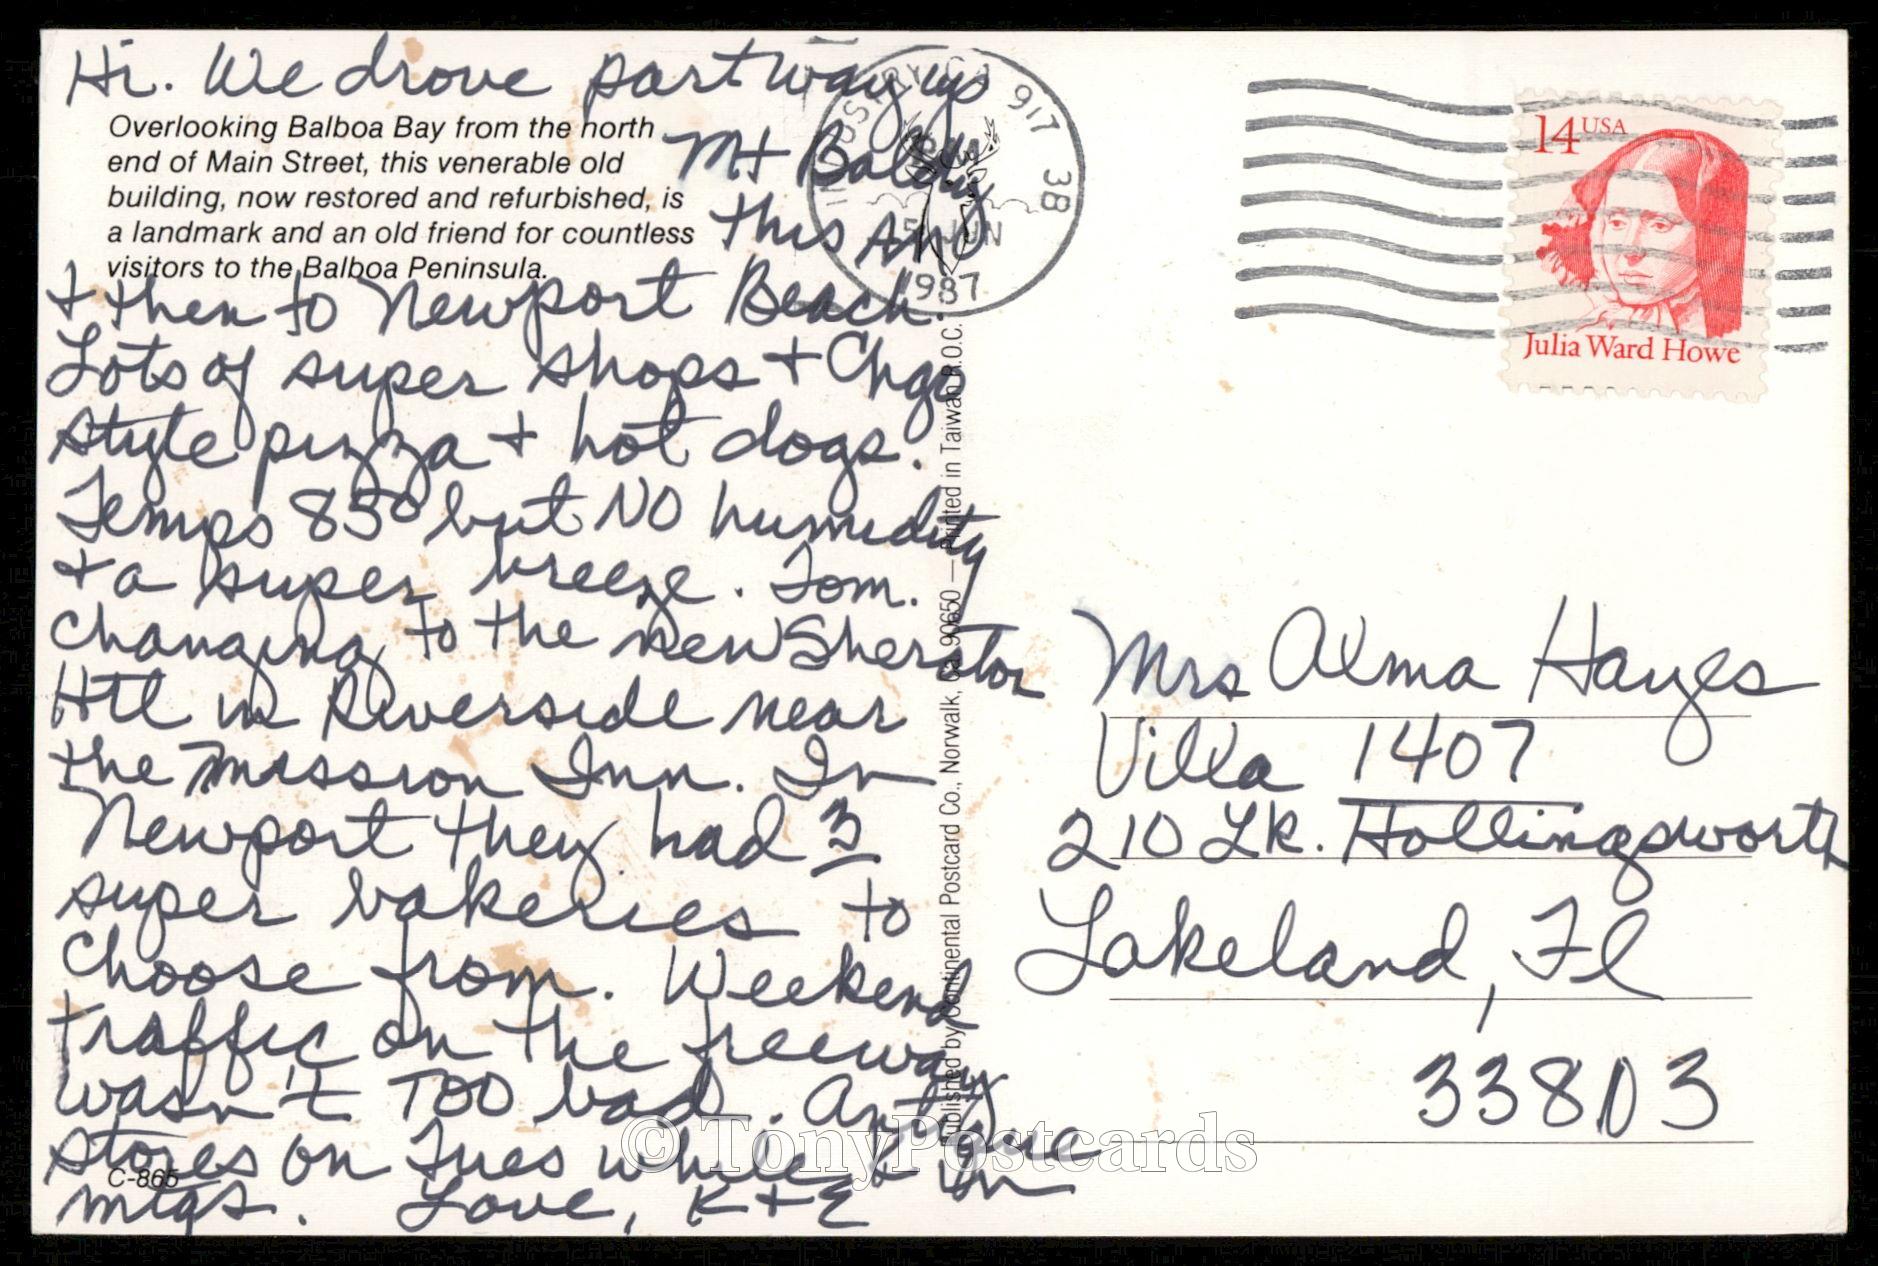 Hi. We drove partway up
Overlooking Balboa Bay from the north
end of Main Street, this venerable old
building, now restored and refurbished, is
a landmark and an old friend for countless
visitors to the Balboa Peninsula.
Mt Baldy
this AM
+ then to Newport Beach.
Lots of super shops + Chgo
style pizza + hot dogs.
Temps 85° but NO humidity
+ a super breeze. Tom.
changing to the new Sheraton
Htl in Riverside near
the Mission Inn. In
Newport they had 3
super bakeries to
choose from. Weekend
traffic on the freeway
wasn't TOO bad. Antique
stores on Tues while K in
mtgs. Love, K + E
C-865
Published by Continental Postcard Co., Norwalk, Ca. 90650 — Printed in Taiwan R.O.C.
INDUSTRY, CA 917 3B
PM
5 JUN
1987
14 USA
Julia Ward Howe
Mrs Alma Hayes
Villa 1407
210 Lk. Hollingsworth
Lakeland, Fl
33803
© TonyPostcards